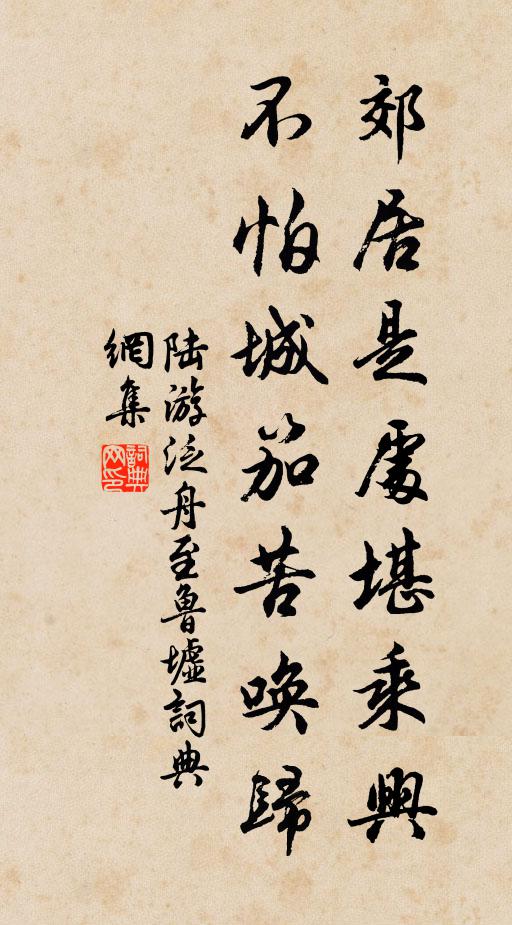 郊居是處堪乘興
不怕城笳苦喚歸
陆游泛舟至魯墟詞典
網集
詞典
网印